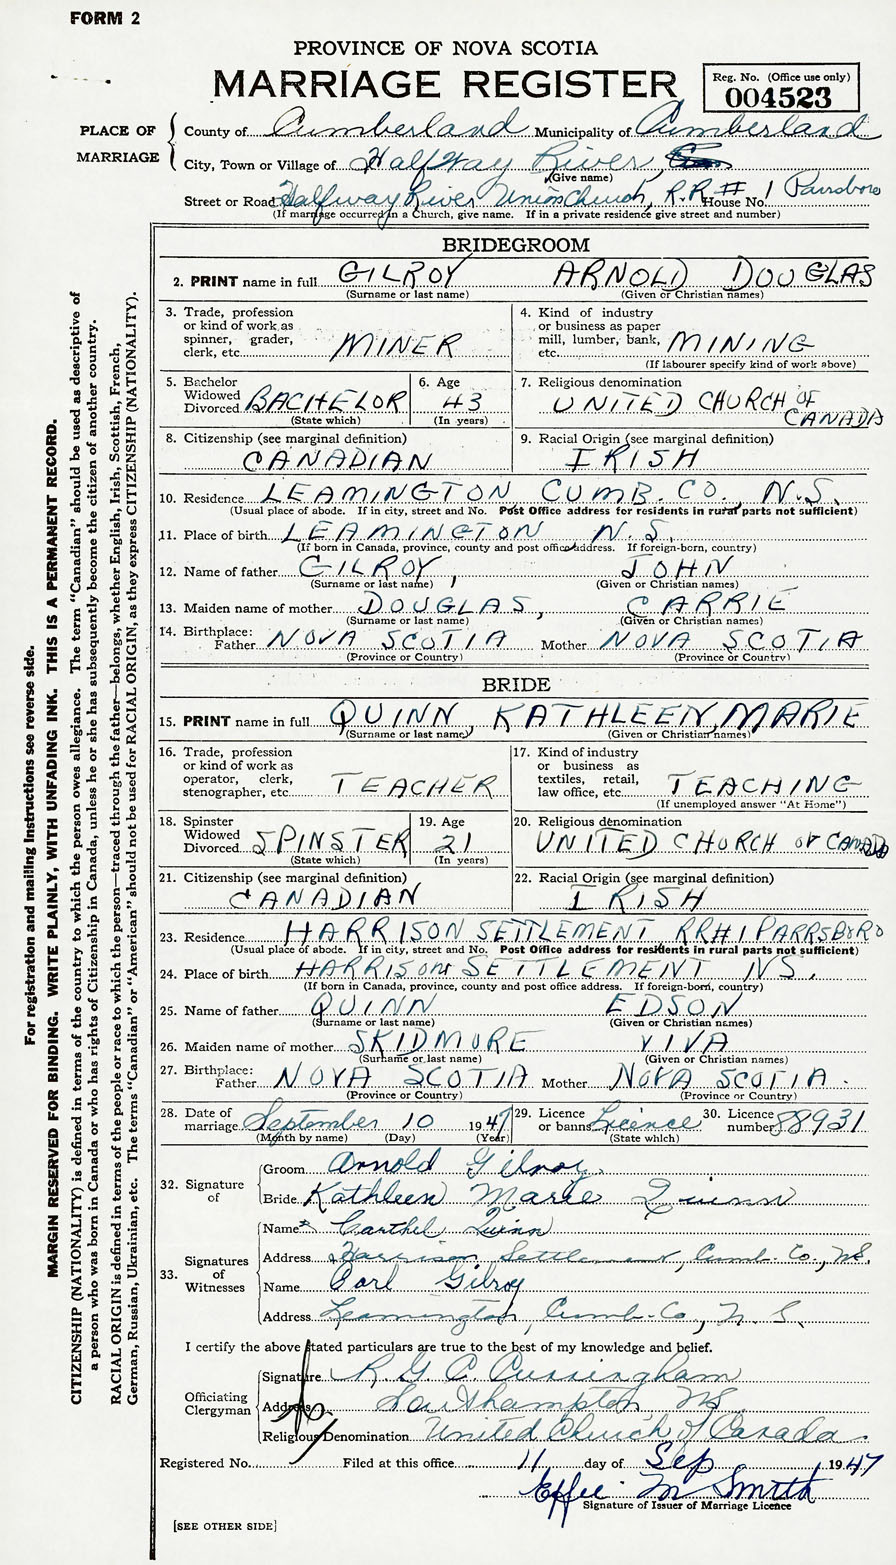 FORM 2
PROVINCE OF NOVA SCOTIA
MARRIAGE REGISTER
Reg. No. (Office use only)
004523
PLACE OF MARRIAGE
County of Cumberland Municipality of Cumberland
City, Town or Village of Halfway River
(Give name)
Street or Road Halfway River Union Church, R.R. # 1 House No. Parrsboro
(If marriage occurred in a Church, give name. If in a private residence give street and number)
BRIDEGROOM
2. PRINT name in full GILROY ARNOLD DOUGLAS
(Surname or last name) (Given or Christian names)
3. Trade, profession or kind of work as spinner, grader, clerk, etc. MINER
4. Kind of industry or business as paper mill, lumber, bank, etc. MINING
(If labourer specify kind of work above)
5. Bachelor Widowed Divorced BACHELOR
(State which)
6. Age 43
(In years)
7. Religious denomination
UNITED CHURCH OF CANADA
8. Citizenship (see marginal definition)
CANADIAN
9. Racial Origin (see marginal definition)
IRISH
10. Residence LEAMINGTON CUMB. CO., N.S.
(Usual place of abode. If in city, street and No. Post Office address for residents in rural parts not sufficient)
11. Place of birth LEAMINGTON N.S.
(If born in Canada, province, county and post office address. If foreign-born, country)
12. Name of father GILROY, JOHN
(Surname or last name) (Given or Christian names)
13. Maiden name of mother DOUGLAS, CARRIE
(Surname or last name) (Given or Christian names)
14. Birthplace: Father NOVA SCOTIA Mother NOVA SCOTIA
(Province or Country) (Province or Country)
BRIDE
15. PRINT name in full QUINN, KATHLEEN, MARIE
(Surname or last name) (Given or Christian names)
16. Trade, profession or kind of work as operator, clerk, stenographer, etc. TEACHER
17. Kind of industry or business as textiles, retail, law office, etc. TEACHING
(If unemployed answer "At Home")
18. Spinster Widowed Divorced SPINSTER
(State which)
19. Age 21
(In years)
20. Religious denomination
UNITED CHURCH OF CANADA
21. Citizenship (see marginal definition)
CANADIAN
22. Racial Origin (see marginal definition)
IRISH
23. Residence HARRISON SETTLEMENT RR#1 PARRSBORO
(Usual place of abode. If in city, street and No. Post Office address for residents in rural parts not sufficient)
24. Place of birth HARRISON SETTLEMENT NS.
(If born in Canada, province, county and post office address. If foreign-born, country)
25. Name of father QUINN EDSON
(Surname or last name) (Given or Christian names)
26. Maiden name of mother SKIDMORE VIVA
(Surname or last name) (Given or Christian names)
27. Birthplace: Father NOVA SCOTIA Mother NOVA SCOTIA.
(Province or Country) (Province or Country)
28. Date of marriage September 10 1947
(Month by name) (Day) (Year)
29. Licence or banns Licence
(State which)
30. Licence number 88931
32. Signature of
Groom Arnold Gilroy.
Bride Kathleen Marie Quinn
33. Signatures of Witnesses
Name Carthel Quinn
Address Harrison Settlement, Cumb. Co., N.S.
Name Earl Gilroy
Address Leamington, Cumb. Co., N.S.
I certify the above stated particulars are true to the best of my knowledge and belief.
Officiating Clergyman
Signature R. G. C. Cunningham
Address Southampton NS
Religious Denomination United Church of Canada.
Registered No. Filed at this office 11 day of Sep 1947
Effie M Smith
Signature of Issuer of Marriage Licence
[SEE OTHER SIDE]
For registration and mailing instructions see reverse side.
MARGIN RESERVED FOR BINDING. WRITE PLAINLY, WITH UNFADING INK. THIS IS A PERMANENT RECORD.
CITIZENSHIP (NATIONALITY) is defined in terms of the country to which the person owes allegiance. The term "Canadian" should be used as descriptive of
a person who was born in Canada or who has rights of Citizenship in Canada, unless he or she has subsequently become the citizen of another country.
RACIAL ORIGIN is defined in terms of the people or race to which the person—traced through the father—belongs, whether English, Irish, Scottish, French,
German, Russian, Ukrainian, etc. The terms "Canadian" or "American" should not be used for RACIAL ORIGIN, as they express CITIZENSHIP (NATIONALITY).